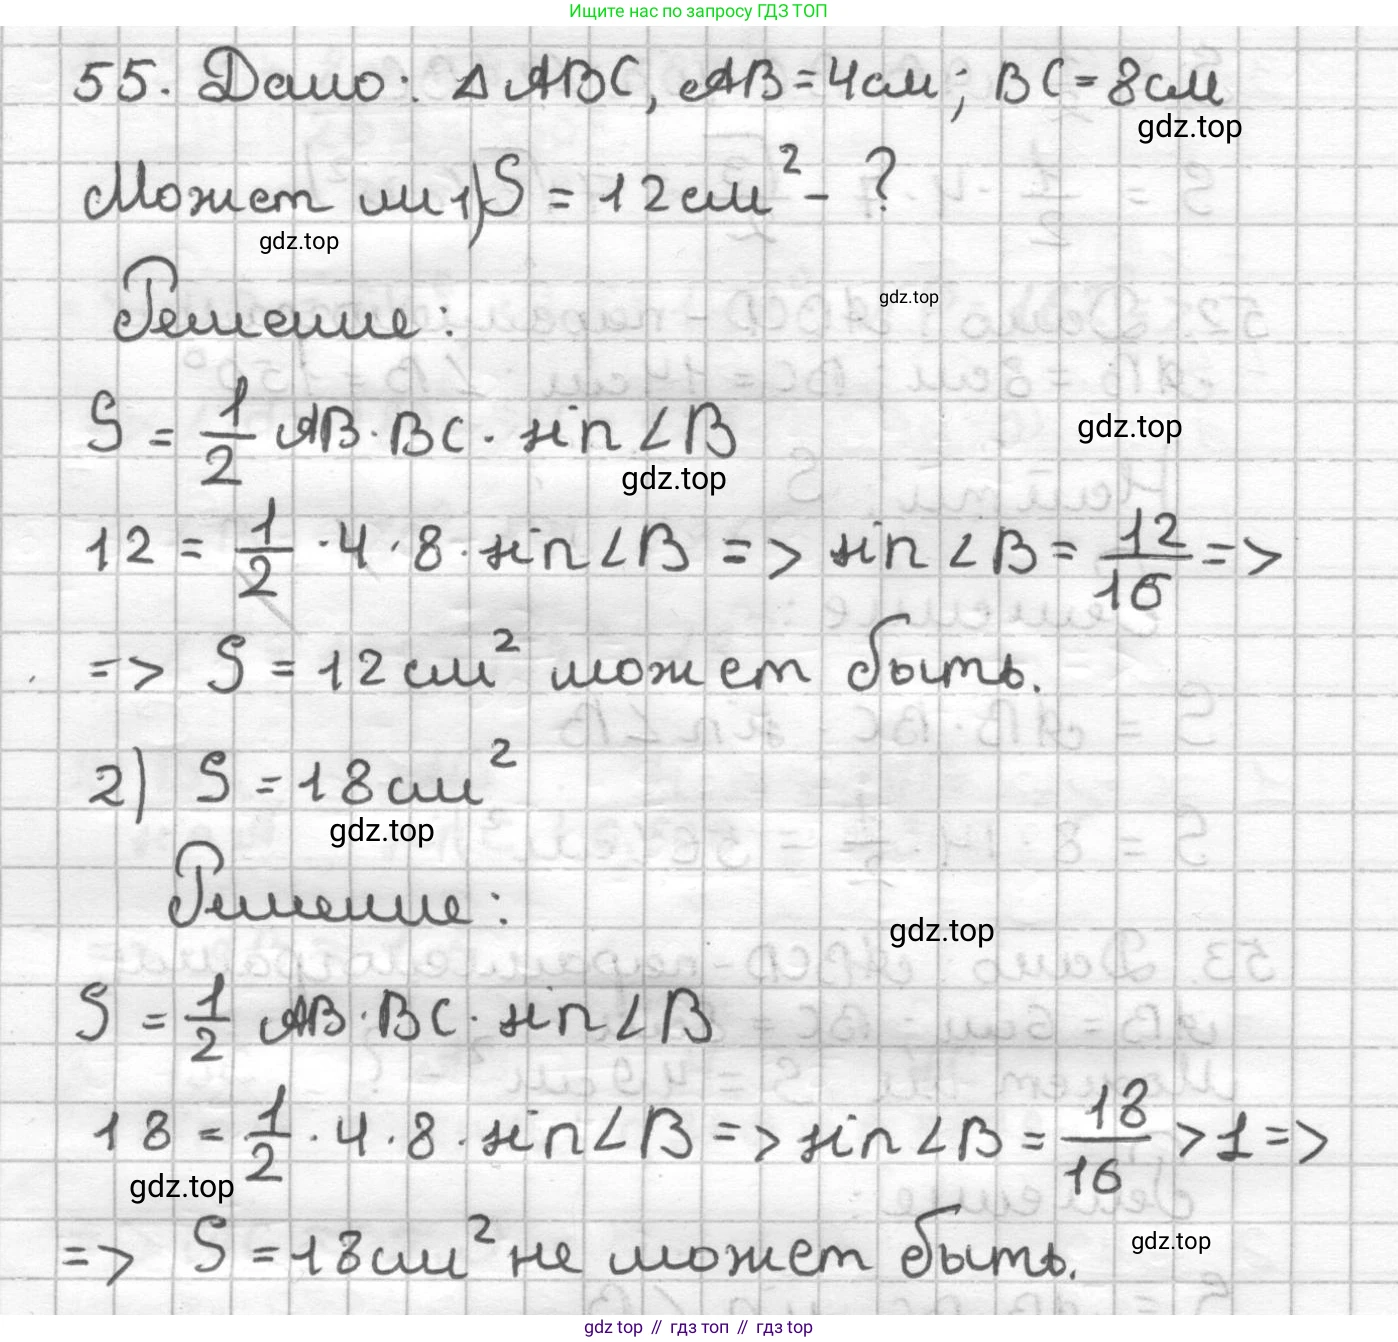 Ищите нас по запросу ГДЗ ТОП
55. Дано: △ABC, AB=4см; BC=8см
gdz.top
Может ли 1) S = 12см² - ?
gdz.top
gdz.top
Решение:
S = 1/2 AB · BC · sin∠B
gdz.top
gdz.top
12 = 1/2 · 4 · 8 · sin∠B => sin∠B = 12/16 =>
=> S = 12см² может быть.
2) S = 18см²
gdz.top
Решение:
gdz.top
S = 1/2 AB · BC · sin∠B
18 = 1/2 · 4 · 8 · sin∠B => sin∠B = 18/16 > 1 =>
gdz.top
=> S = 18см² не может быть.
gdz.top
gdz top // гдз топ // гдз top